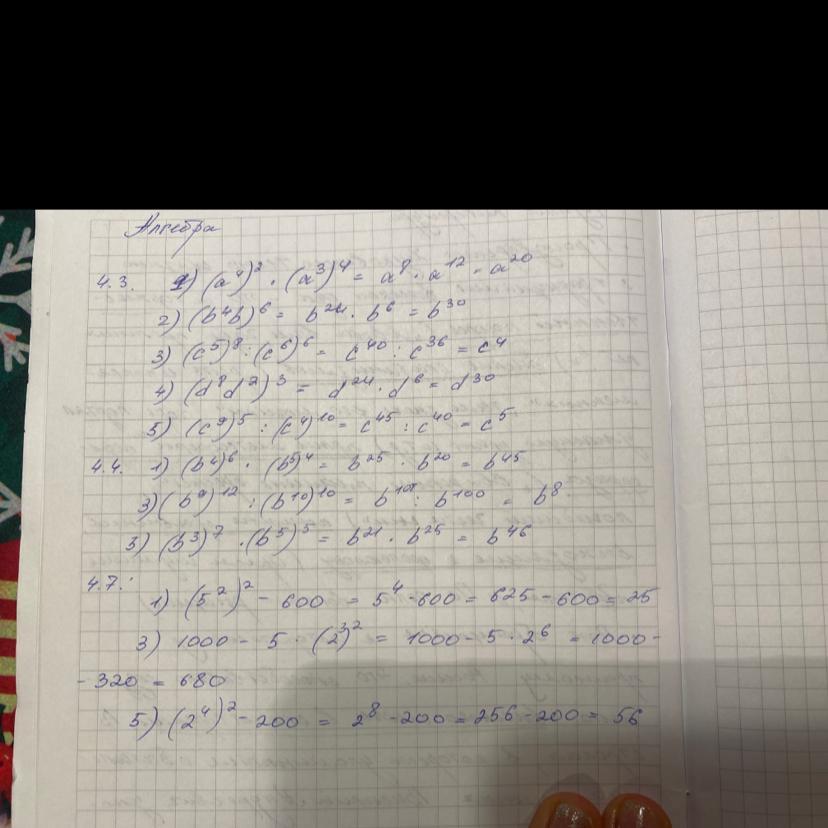 Алгебра
4.3. 1) (a⁴)² · (a³)⁴ = a⁸ · a¹² = a²⁰
2) (b⁴b)⁶ = b²⁴ · b⁶ = b³⁰
3) (c⁵)⁸ : (c⁶)⁶ = c⁴⁰ : c³⁶ = c⁴
4) (d⁸d²)³ = d²⁴ · d⁶ = d³⁰
5) (c⁹)⁵ : (c⁴)¹⁰ = c⁴⁵ : c⁴⁰ = c⁵
4.4. 1) (b⁴)⁶ · (b⁵)⁴ = b²⁵ · b²⁰ = b⁴⁵
3) (b⁹)¹² : (b¹⁰)¹⁰ = b¹⁰⁸ : b¹⁰⁰ = b⁸
3) (b³)⁷ · (b⁵)⁵ = b²¹ · b²⁵ = b⁴⁶
4.7.
1) (5²)² - 600 = 5⁴ - 600 = 625 - 600 = 25
3) 1000 - 5 · (2³)² = 1000 - 5 · 2⁶ = 1000 -
- 320 = 680
5) (2⁴)² - 200 = 2⁸ - 200 = 256 - 200 = 56